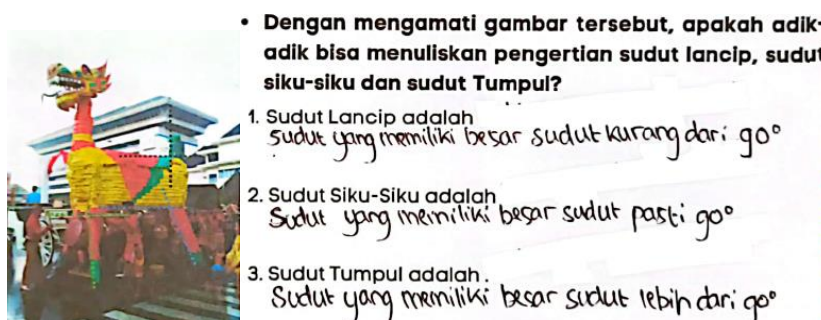 • Dengan mengamati gambar tersebut, apakah adik-
adik bisa menuliskan pengertian sudut lancip, sudut
siku-siku dan sudut Tumpul?
1. Sudut Lancip adalah
sudut yang memiliki besar sudut kurang dari 90°
2. Sudut Siku-Siku adalah
Sudut yang memiliki besar sudut pasti 90°
3. Sudut Tumpul adalah .
Sudut yang memiliki besar sudut lebih dari 90°